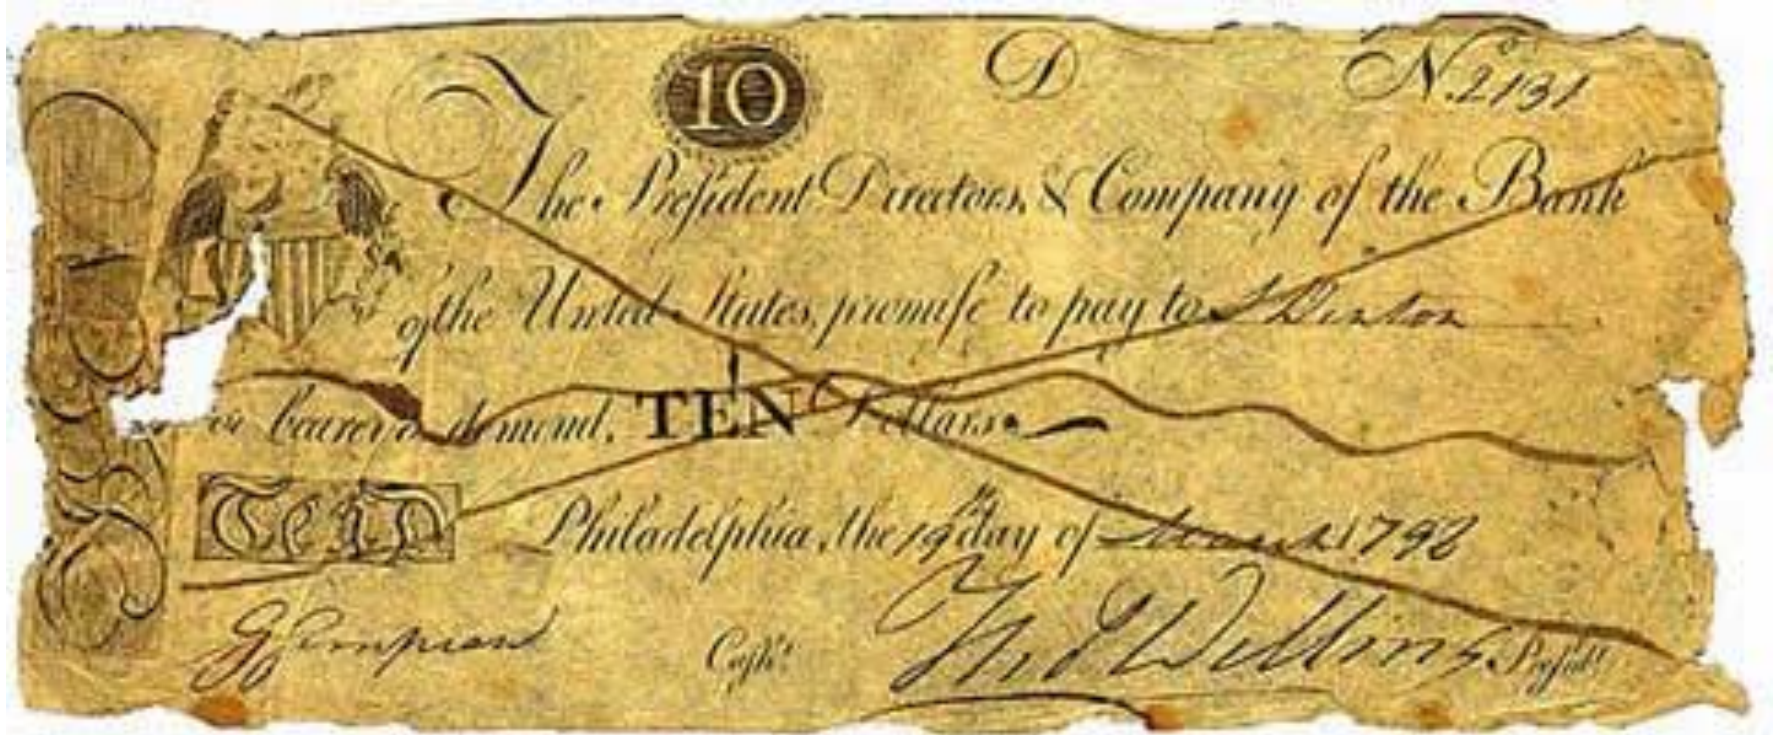 10 D No. 2131
The Preſident Directors, & Company of the Bank
of the United States, promiſe to pay to
or bearer on demand, TEN Dollars.
Ten Philadelphia, the 19th day of March 1792
G Simpson Caſhr. Thos Willing Preſidt.